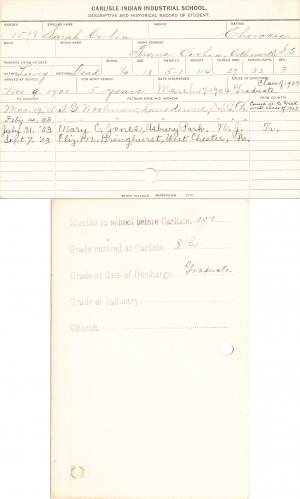 CARLISLE INDIAN INDUSTRIAL SCHOOL.
DESCRIPTIVE AND HISTORICAL RECORD OF STUDENT.
NUMBER ENGLISH NAME AGENCY NATION
Sarah Cochran Cherokee
BAND HOME ADDRESS
Cochran,
PARENTS LIVING OR DEAD BLOOD AGE HEIGHT WEIGHT SEX
Living Dead 18 5-1 114 F
ARRIVED AT SCHOOL FOR WHAT PERIOD DATE DISCHARGED CAUSE OF DISCHARGE
Class of 1903
Nov 9 1900 5 years March 17 1904 Graduate
PATRONS NAME AND ADDRESS FROM COUNTRY
Mar. 19, 01 Lansdowne, Pa. Came in to Grad. with class of 1903
Feby 24, 03
July 31, '03 Mary C. Jones, Asbury Park, N. J. Tr.
Sept 7, '03 Eliz. M. Bringhurst, West Chester, Pa.
Months in school before Carlisle, 100
Grade entered at Carlisle, 8th
Grade at date of Discharge, Graduate
Trade or Industry,
Church,